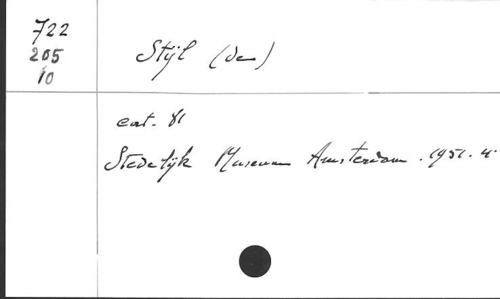 722
205
10
Stijl (de)
cat. 81
Stedelijk Museum Amsterdam. 1951. 4°